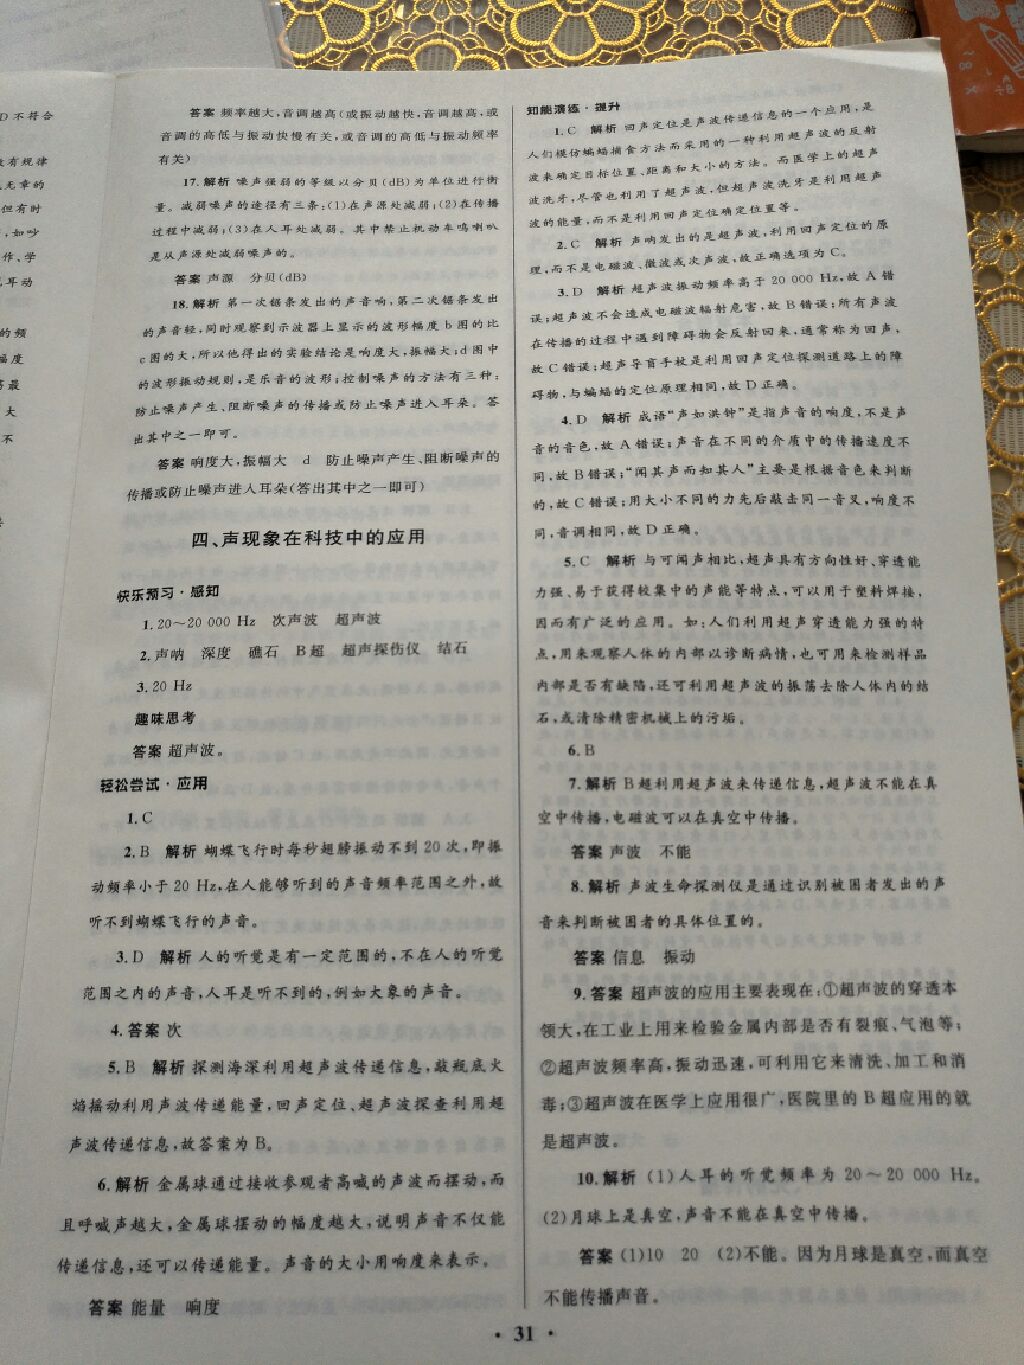 D不符合
有规律
无章的
但有时
,如吵
作、学
耳动
的频
幅度
最
大
不
答案 频率越大,音调越高(或振动越快,音调越高,或
音调的高低与振动快慢有关,或音调的高低与振动频率
有关)
17.解析 噪声强弱的等级以分贝(dB)为单位进行衡
量。减弱噪声的途径有三条:(1)在声源处减弱;(2)在传播
过程中减弱;(3)在人耳处减弱。其中禁止机动车鸣喇叭
是从声源处减弱噪声的。
答案 声源 分贝(dB)
18.解析 第一次锯条发出的声音响,第二次锯条发出
的声音轻,同时观察到示波器上显示的波形幅度b图的比
c图的大,所以他得出的实验结论是响度大,振幅大;d图中
的波形振动规则,是乐音的波形;控制噪声的方法有三种:
防止噪声产生、阻断噪声的传播或防止噪声进入耳朵。答
出其中之一即可。
答案 响度大,振幅大 d 防止噪声产生、阻断噪声的
传播或防止噪声进入耳朵(答出其中之一即可)
四、声现象在科技中的应用
快乐预习·感知
1.20～20 000 Hz 次声波 超声波
2.声呐 深度 礁石 B超 超声探伤仪 结石
3.20 Hz
趣味思考
答案 超声波。
轻松尝试·应用
1.C
2.B 解析 蝴蝶飞行时每秒翅膀振动不到20次,即振
动频率小于20 Hz,在人能够听到的声音频率范围之外,故
听不到蝴蝶飞行的声音。
3.D 解析 人的听觉是有一定范围的,不在人的听觉
范围之内的声音,人耳是听不到的,例如大象的声音。
4.答案 次
5.B 解析 探测海深利用超声波传递信息,敲瓶底火
焰摇动利用声波传递能量,回声定位、超声波探查利用超
声波传递信息,故答案为B。
6.解析 金属球通过接收参观者高喊的声波而摆动,而
且呼喊声越大,金属球摆动的幅度越大,说明声音不仅能
传递信息,还可以传递能量。声音的大小用响度来表示。
答案 能量 响度
知能演练·提升
1.C 解析 回声定位是声波传递信息的一个应用,是
人们模仿蝙蝠捕食方法而采用的一种利用超声波的反射
波来确定目标位置、距离和大小的方法。而医学上的超声
波洗牙,尽管也利用了超声波,但超声波洗牙是利用超声
波的能量,而不是利用回声定位确定位置等。
2.C 解析 声呐发出的是超声波,利用回声定位的原
理,而不是电磁波、微波或次声波,故正确选项为C。
3.D 解析 超声波振动频率高于20 000 Hz,故A错
误;超声波不会造成电磁波辐射危害,故B错误;所有声波
在传播的过程中遇到障碍物会反射回来,通常称为回声,
故C错误;超声导盲手杖是利用回声定位探测道路上的障
碍物,与蝙蝠的定位原理相同,故D正确。
4.D 解析 成语“声如洪钟”是指声音的响度,不是声
音的音色,故A错误;声音在不同的介质中的传播速度不
同,故B错误;“闻其声而知其人”主要是根据音色来判断
的,故C错误;用大小不同的力先后敲击同一音叉,响度不
同,音调相同,故D正确。
5.C 解析 与可闻声相比,超声具有方向性好、穿透能
力强、易于获得较集中的声能等特点,可以用于塑料焊接,
因而有广泛的应用。如:人们利用超声穿透能力强的特
点,用来观察人体的内部以诊断病情,也可用来检测样品
内部是否有缺陷,还可利用超声波的振荡去除人体内的结
石,或清除精密机械上的污垢。
6.B
7.解析 B超利用超声波来传递信息,超声波不能在真
空中传播,电磁波可以在真空中传播。
答案 声波 不能
8.解析 声波生命探测仪是通过识别被困者发出的声
音来判断被困者的具体位置的。
答案 信息 振动
9.答案 超声波的应用主要表现在:①超声波的穿透本
领大,在工业上用来检验金属内部是否有裂痕、气泡等;
②超声波频率高,振动迅速,可利用它来清洗、加工和消
毒;③超声波在医学上应用很广,医院里的B超应用的就
是超声波。
10.解析 (1)人耳的听觉频率为20～20 000 Hz。
(2)月球上是真空,声音不能在真空中传播。
答案 (1)10 20 (2)不能。因为月球是真空,而真空
不能传播声音。
· 31 ·